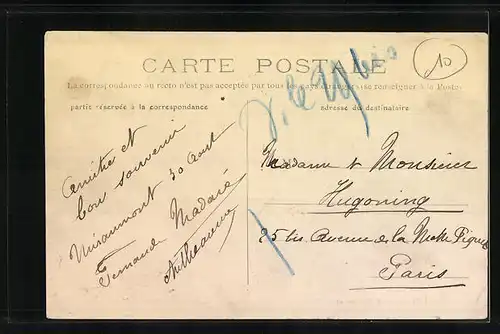 CARTE POSTALE
La correspondance au recto n'est pas acceptée par tous les pays étrangers se renseigner à la Poste
partie réservée à la correspondance
adresse du destinataire
Amitié et
bon souvenir
Miraumont 30 Août
Fernande
Madame & Monsieur
Hugoning
25 bis Avenue de la Motte Piquet
Paris
10